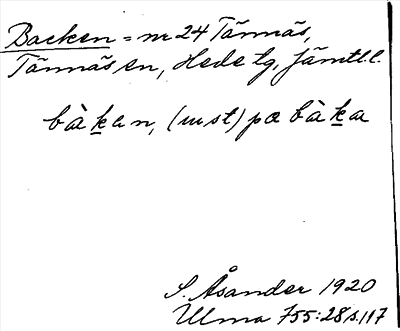 Backen = nr 24 Tännäs,
Tännäs sn, Hede tg, Jämtl. l.
bàḵen, (inst) pæ bàḵa
S. Åsander 1920
Ulma 755:28 s. 117